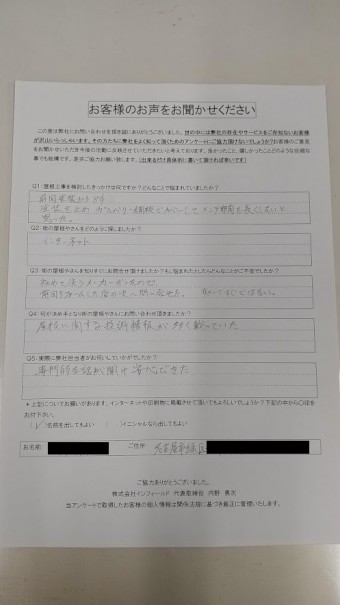 お客様のお声をお聞かせください
この度は弊社にお問い合わせを頂き誠にありがとうございました。世の中には弊社の存在やサービスをご存知ないお客様
が沢山いらっしゃいます。その方たちに弊社をよく知って頂くためのアンケートにご協力頂けないでしょうか?お客様のご意見
をお聞かせいただき今後の活動に反映させていただきたいと考えております。良かったこと、嬉しかったことどのような些細な
事でも結構です。是非ご協力お願い致します。(出来るだけ具体的に書いて頂ければ幸いです)
Q1:屋根工事を検討したきっかけは何ですか?どんなことで悩まれていましたか?
前回塗装から
塗装を止め ガルバリー鋼板でカバーして メンテ期間を長くしたいと
思った。
Q2:街の屋根やさんをどのように探しましたか?
インターネット
Q3:街の屋根やさんを知りすぐにお問合せ頂けましたか?もし悩まれたとしたらどんなことがご不安でしたか?
初めて
Q4:何が決め手となり街の屋根やさんにお問い合わせ頂きましたか?
屋根に関する技術情報が多く載っていた
Q5:実際に弊社担当者がお伺いしていかがでしたか?
専門的な話が聞け
*上記についてお願いがあります。インターネットや印刷物に掲載させて頂いてもよろしいでしょうか?下記の中から○印を
お付下さい。
( )名前を出してもよい ( )イニシャルなら出してもよい
お名前 ご住所 名古屋市緑区
ご協力ありがとうございました。
株式会社インフィールド 代表取締役 内野 勇次
当アンケートで取得したお客様の個人情報は関係法規に基づき厳正に管理いたします。